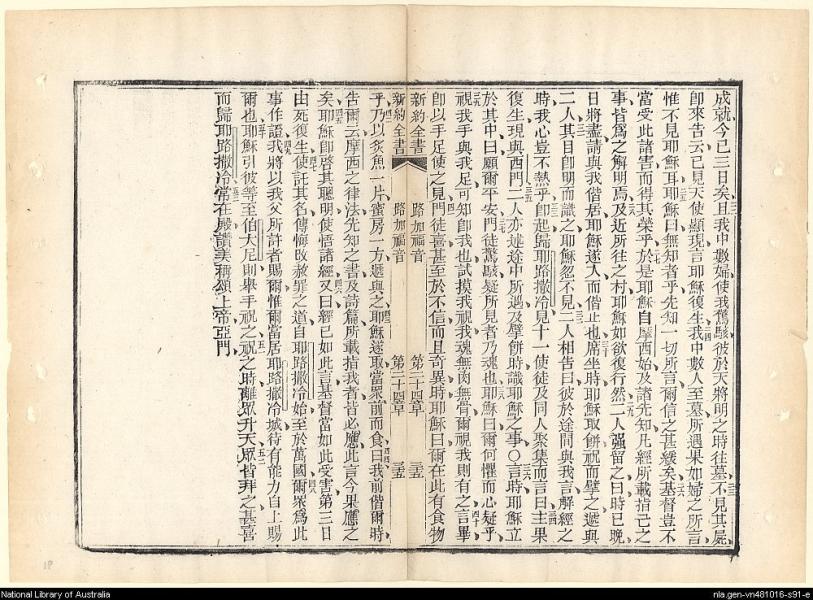 成就今已三日矣且我中數婦使我驚駭彼於天將明之時往墓不見其屍
卽來告云已見天使顯現言耶穌復生我中數人至墓所遇果如婦之所言
惟不見耶穌耳耶穌曰無知者乎先知一切所言爾信之甚緩矣基督豈不
當受此諸害而得其榮乎於是耶穌自摩西始及諸先知凡經所載指己之
事皆爲之解明焉及近所往之村耶穌如欲復行然二人强留之曰時已晚
日將盡請與我偕居耶穌遂入而偕止也席坐時耶穌取餅祝而擘之遞與
二人其目卽明而識之耶穌忽不見二人相告曰彼於途間與我言解經之
時我心豈不熱乎卽起歸耶路撒冷見十一使徒及同人聚集而言曰主果
復生現與西門二人亦述途中所遇及擘餅時識耶穌之事〇言時耶穌立
於其中曰願爾平安門徒驚駭疑所見者乃魂也耶穌曰爾何懼而心疑乎
視我手與我足可知卽我也試摸我視我魂無肉無骨爾視我則有之言畢
卽以手足使之見門徒喜甚至於不信而且奇異時耶穌曰爾在此有食物
新約全書 路加福音 第二十四章 三五
新約全書 路加福音 第二十四章 三五
乎乃以炙魚一片蜜房一方遞與之耶穌遂取當眾前而食曰我前偕爾時
告爾云摩西之律法先知之書及詩篇所載指我者皆必應此言今果應之
矣耶穌卽啓其聰明使悟諸經又曰經已如此言基督當如此受害第三日
由死復生使託其名傳悔改赦罪之道自耶路撒冷始至於萬國爾眾爲此
事作證我將以我父所許者賜爾惟爾當居耶路撒冷城待有能力自上賜
爾也耶穌引彼等至伯大尼則舉手祝之祝之時離眾升天眾皆拜之甚喜
而歸耶路撒冷常在殿讚美稱頌上帝亞門
18
National Library of Australia
nla.gen-vn481016-s91-e